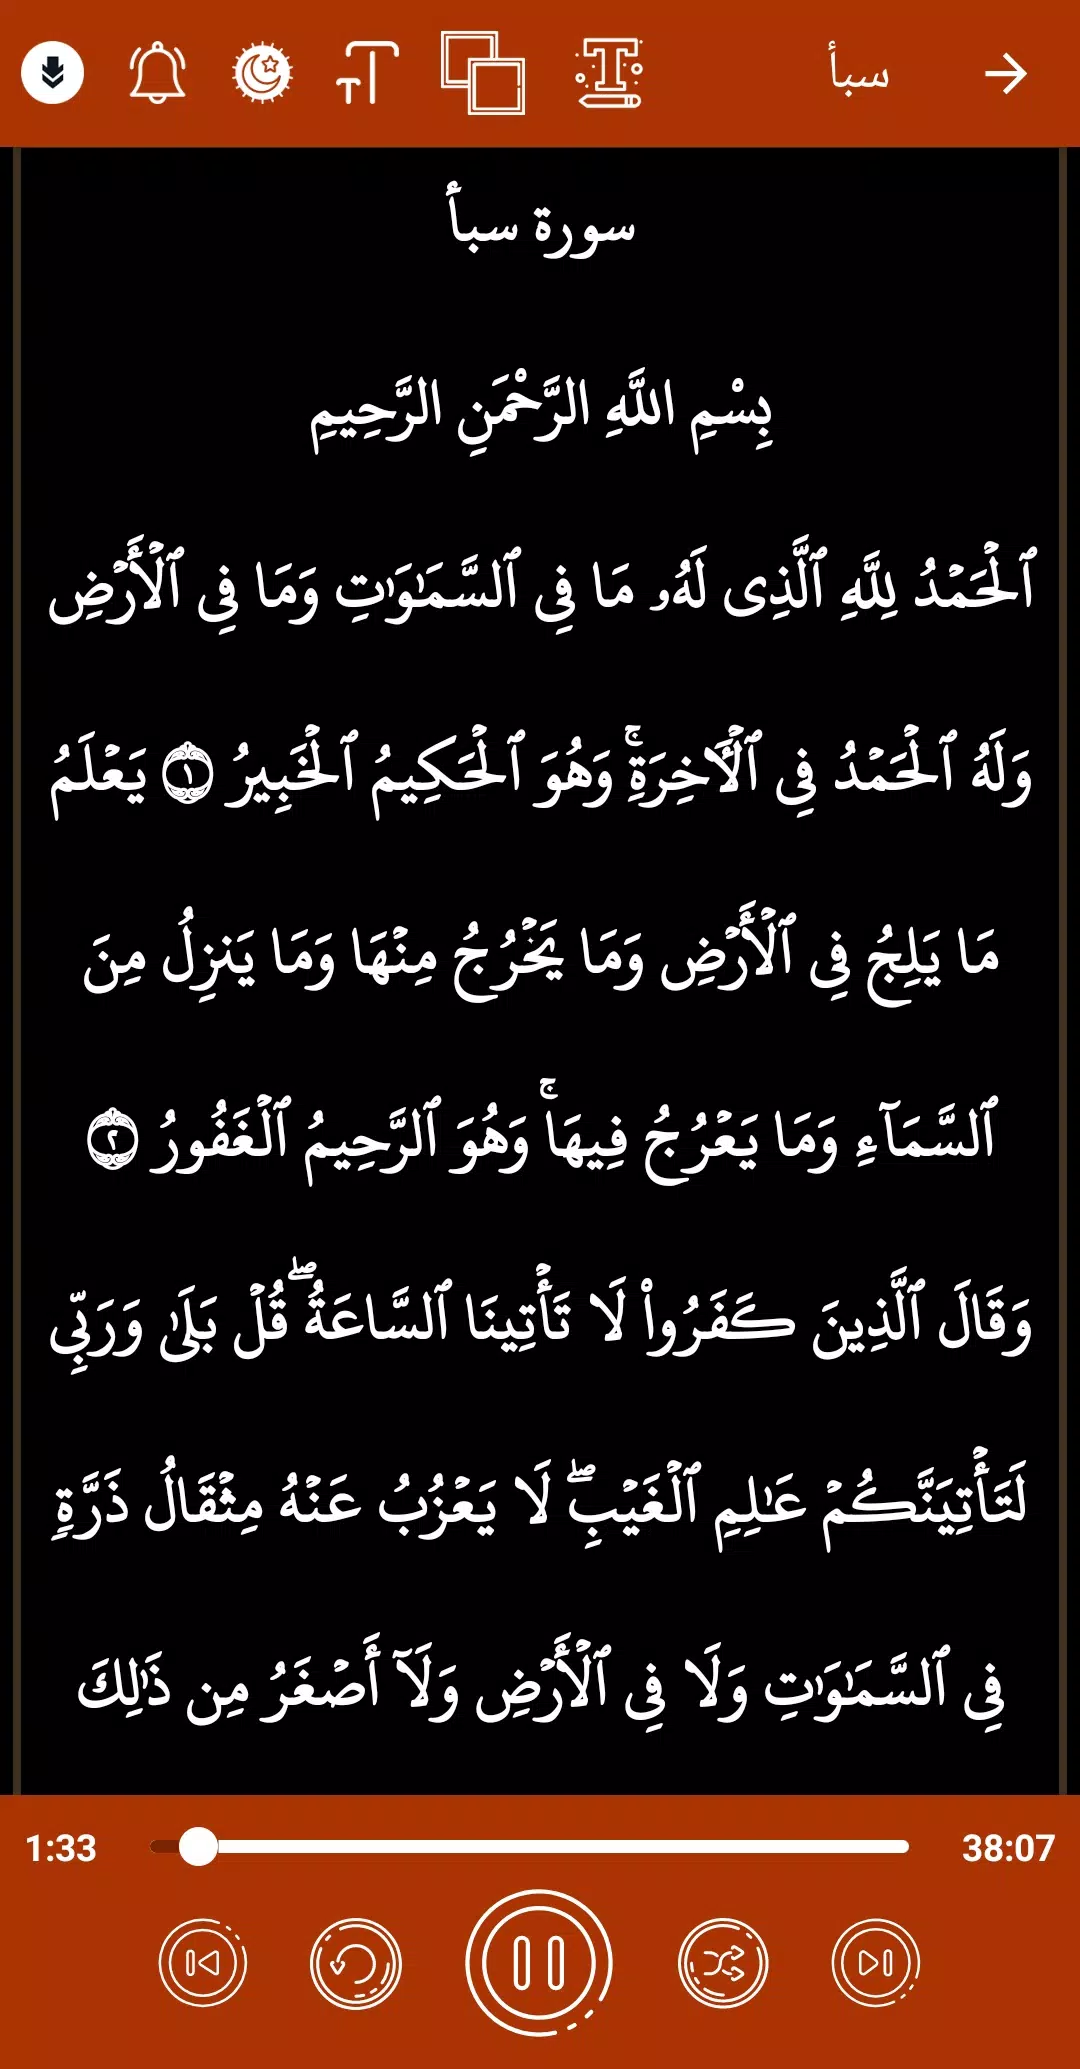 سبأ
سورة سبأ
بِسْمِ اللَّهِ الرَّحْمَنِ الرَّحِيمِ
ٱلْحَمْدُ لِلَّهِ ٱلَّذِى لَهُۥ مَا فِى ٱلسَّمَـٰوَٰتِ وَمَا فِى ٱلْأَرْضِ
وَلَهُ ٱلْحَمْدُ فِى ٱلْـَٔاخِرَةِ ۚ وَهُوَ ٱلْحَكِيمُ ٱلْخَبِيرُ ١ يَعْلَمُ
مَا يَلِجُ فِى ٱلْأَرْضِ وَمَا يَخْرُجُ مِنْهَا وَمَا يَنزِلُ مِنَ
ٱلسَّمَآءِ وَمَا يَعْرُجُ فِيهَا ۚ وَهُوَ ٱلرَّحِيمُ ٱلْغَفُورُ ٢
وَقَالَ ٱلَّذِينَ كَفَرُوا۟ لَا تَأْتِينَا ٱلسَّاعَةُ ۖ قُلْ بَلَىٰ وَرَبِّى
لَتَأْتِيَنَّكُمْ عَـٰلِمِ ٱلْغَيْبِ ۖ لَا يَعْزُبُ عَنْهُ مِثْقَالُ ذَرَّةٍ
فِى ٱلسَّمَـٰوَٰتِ وَلَا فِى ٱلْأَرْضِ وَلَآ أَصْغَرُ مِن ذَٰلِكَ
1:33 38:07